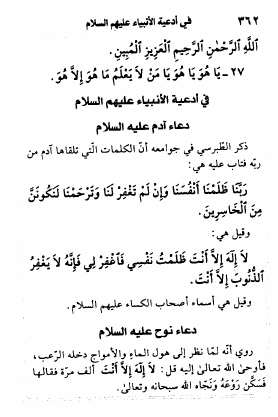 ٣٦٢ في أدعية الأنبياء عليهم السلام
اللَّهِ الرَّحْمٰنِ الرَّحِيمِ الْعَزِيزِ الْمُبِينِ.
٢٧ - يَا هُوَ يَا هُوَ يَا مَنْ لاَ يَعْلَمُ مَا هُوَ إِلاَّ هُوَ.
في أدعية الأنبياء عليهم السلام
دعاء آدم عليه السلام
ذكر الطَّبرسي في جوامعه أنّ الكلمات الّتي تلقاها آدم من
ربّه فتاب عليه هي:
رَبَّنَا ظَلَمْنَا أَنْفُسَنَا وَإِنْ لَمْ تَغْفِرْ لَنَا وَتَرْحَمْنَا لَنَكُونَنَّ
مِنَ الْخَاسِرِينَ.
وقيل هي:
لاَ إِلٰهَ إِلاَّ أَنْتَ ظَلَمْتُ نَفْسِي فَاغْفِرْ لِي فَإِنَّهُ لاَ يَغْفِرُ
الذُّنُوبَ إِلاَّ أَنْتَ.
وقيل هي أسماء أصحاب الكساء عليهم السلام.
دعاء نوح عليه السلام
روي أنّه لمّا نظر إلى هول الماء والأمواج دخله الرّعب،
فأوحىٰ الله تعالىٰ إليه قل: لاَ إِلٰهَ إِلاَّ أَنْتَ ألف مرّة فقالها
فَسَكَّن رَوْعَهُ وَنَجّاه الله سبحانه وتعالىٰ.